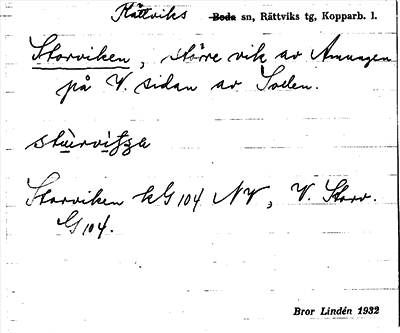 Rättviks Boda sn, Rättviks tg, Kopparb. l.
Storviken, större vik av Amungen
på V. sidan av Soden.
Storviken kG 104 NV, V. Storv.
G 104.
Bror Lindén 1932